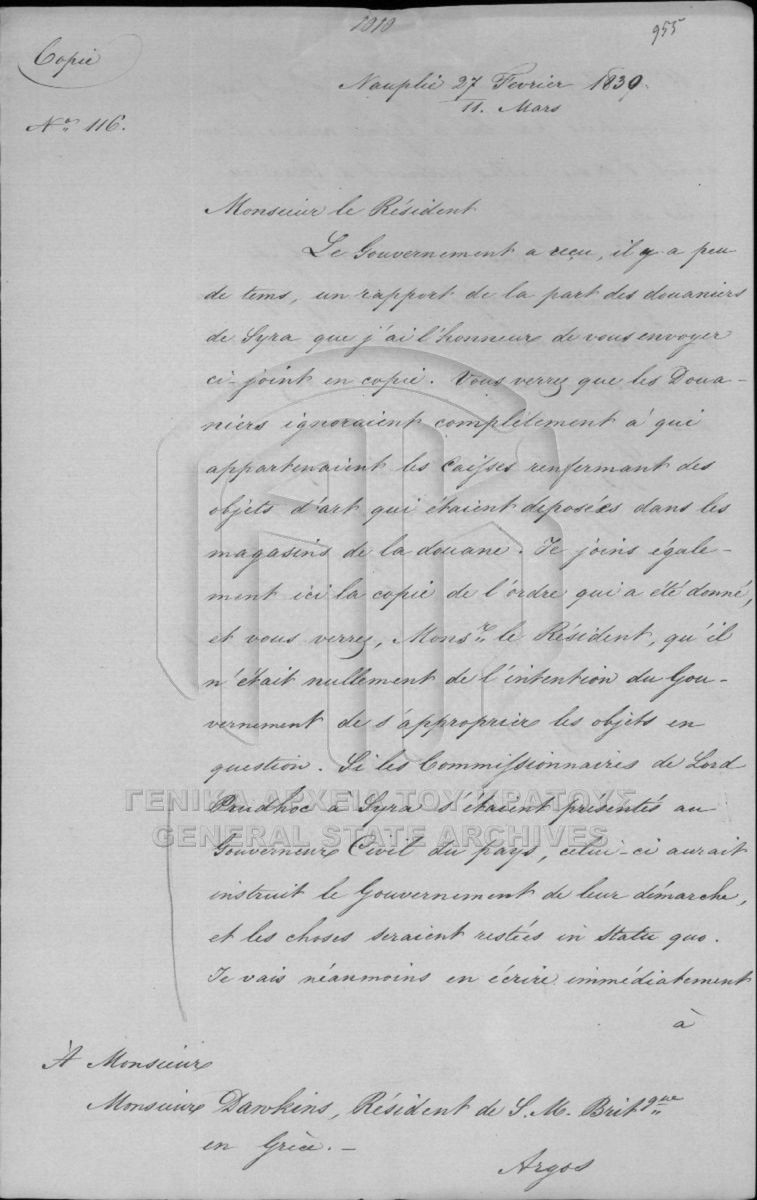 1010
955
Copie
Nauplie 27 Fevrier 1830.
11. Mars
No. 116.
Monsieur le Résident
Le Gouvernement a reçu, il y a peu
de tems, un rapport de la part des douaniers
de Syra que j'ai l'honneur de vous envoyer
ci-joint en copie. Vous verrez que les Doua-
niers ignoraient complétement à qui
appartenaient les Caisses renfermant des
objets d'art qui étaient deposées dans les
magasins de la douane. Je joins égale-
ment ici la copie de l'ordre qui a été donné,
et vous verrez, Monsr. le Résident, qu'il
n'était nullement de l'intention du Gou-
vernement de s'approprier les objets en
question. Si les Commissionnaires de Lord
Prudhoc à Syra s'étaient présentés au
Gouverneur Civil du pays, celui-ci aurait
instruit le Gouvernement de leur démarche,
et les choses seraient restées in statu quo.
Je vais néanmoins en écrire immédiatement
à
À Monsieur
Monsieur Dawkins, Résident de S. M. Britque
en Grèce. -
Argos
ΓΕΝΙΚΑ ΑΡΧΕΙΑ ΤΟΥ ΚΡΑΤΟΥΣ
GENERAL STATE ARCHIVES